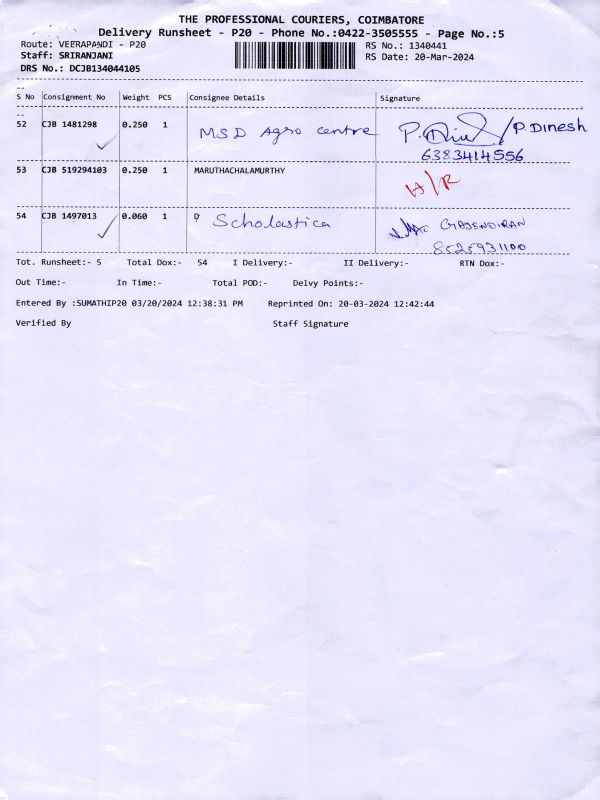 THE PROFESSIONAL COURIERS, COIMBATORE
Delivery Runsheet - P20 - Phone No.:0422-3505555 - Page No.:5
Route: VEERAPANDI - P20 RS No.: 1340441
Staff: SRIRANJANI RS Date: 20-Mar-2024
DRS No.: DCJB134044105
S No Consignment No Weight PCS Consignee Details Signature
52 CJB 1481298 0.250 1 MSD Agro centre P. Dinesh
6383414556
53 CJB 519294103 0.250 1 MARUTHACHALAMURTHY H/R
54 CJB 1497013 0.060 1 Scholastica GAJENDIRAN
8525931100
Tot. Runsheet:- 5 Total Dox:- 54 I Delivery:- II Delivery:- RTN Dox:-
Out Time:- In Time:- Total POD:- Delvy Points:-
Entered By :SUMATHIP20 03/20/2024 12:38:31 PM Reprinted On: 20-03-2024 12:42:44
Verified By Staff Signature